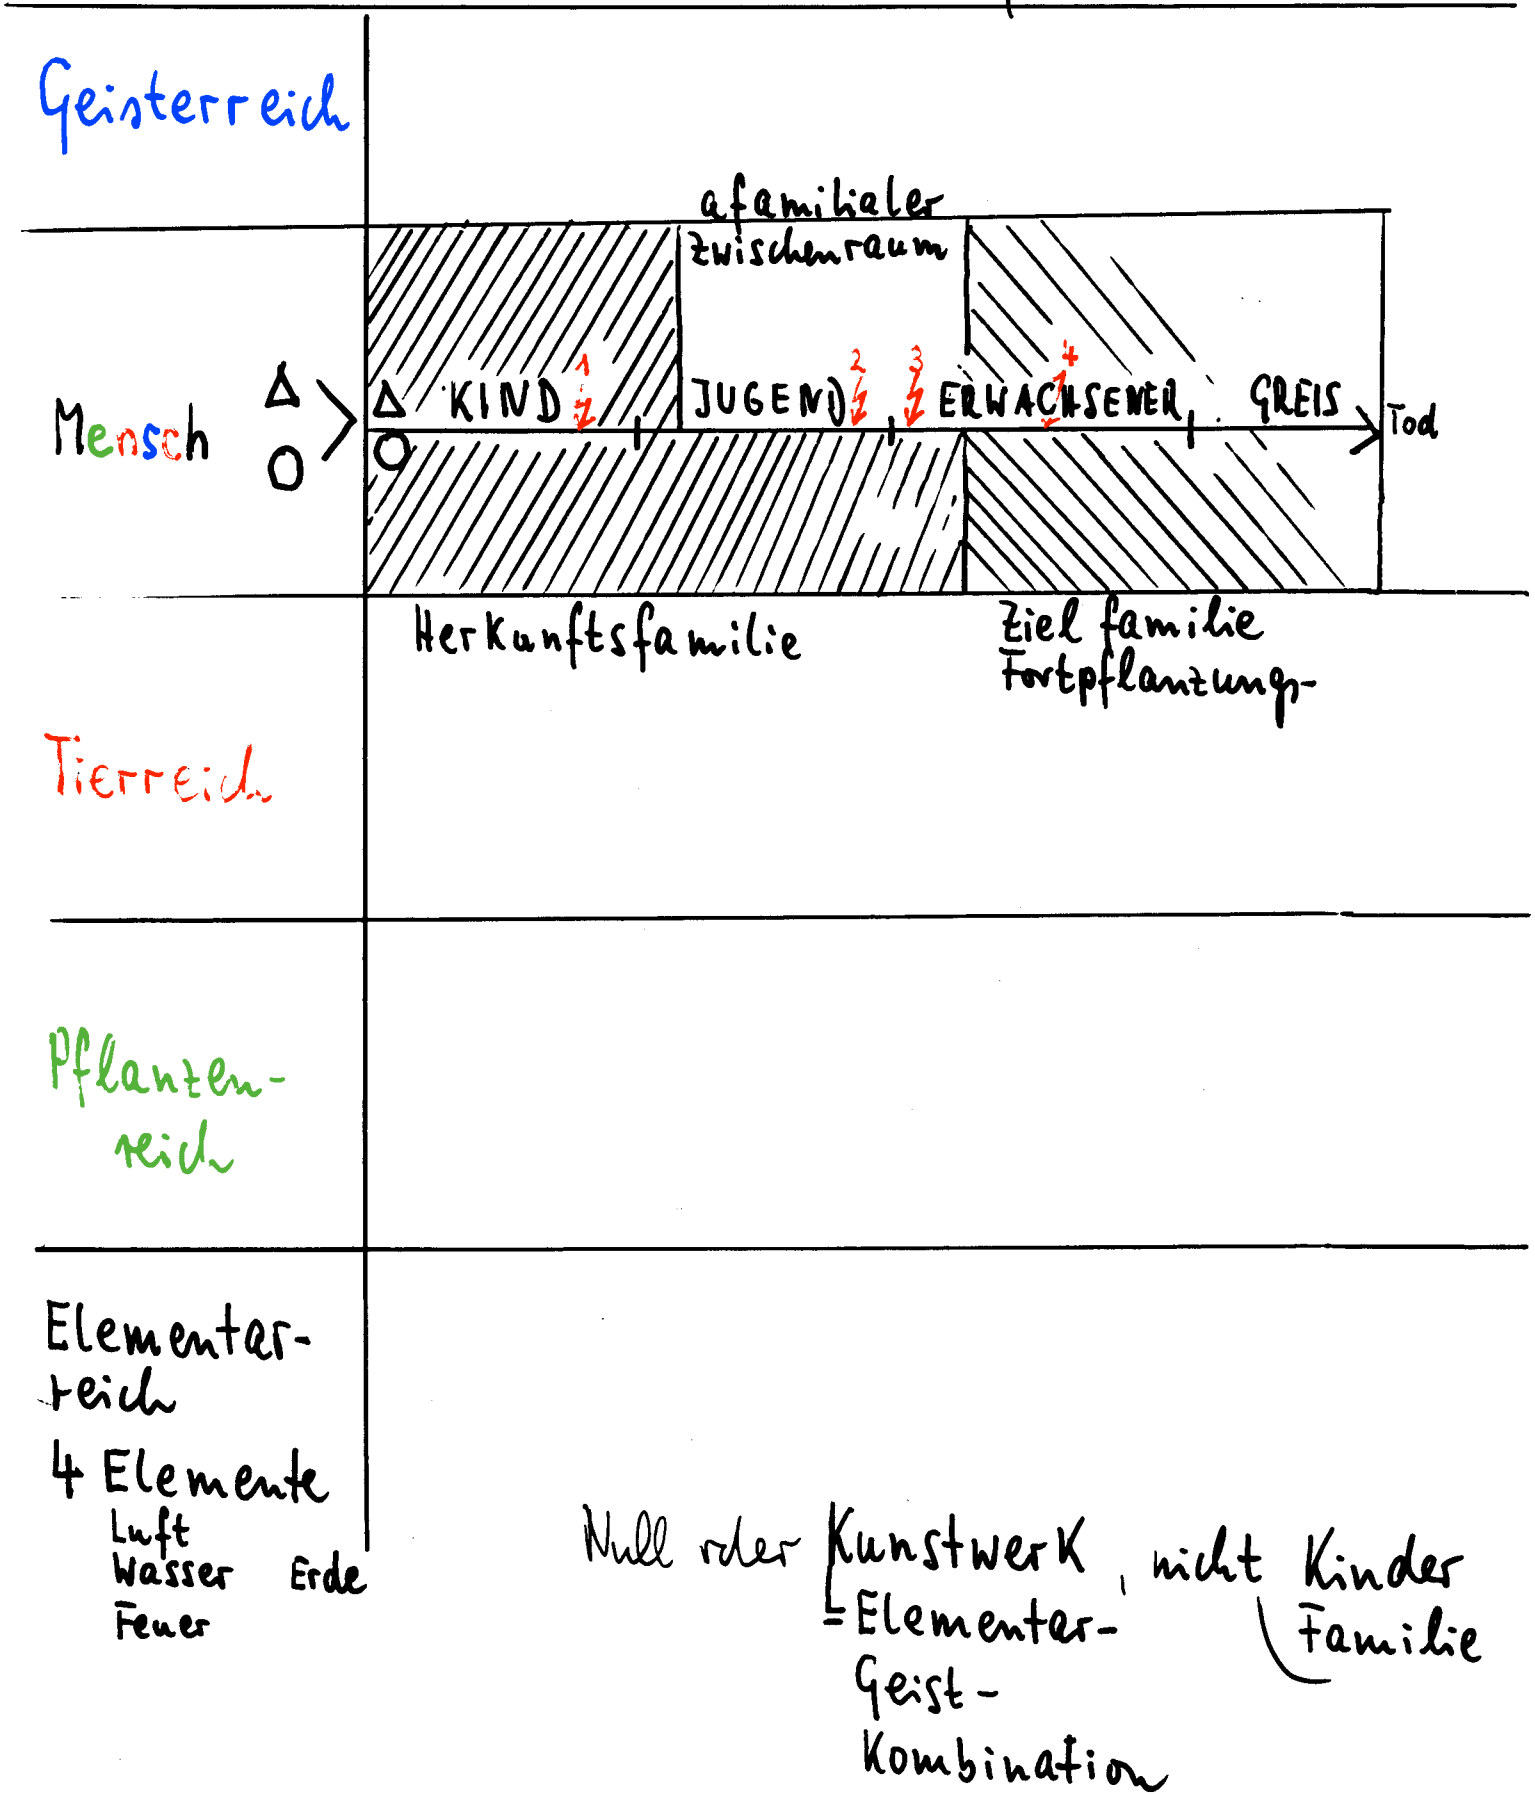 Geisterreich
afamilialer
zwischenraum
1 2 3 4
Mensch KIND JUGEND ERWACHSENER GREIS Tod
Herkunftsfamilie
Zielfamilie
Fortpflanzungs-
Tierreich
Pflanzen-
reich
Elementar-
reich
4 Elemente
Luft
Wasser Erde
Feuer
Null oder Kunstwerk, nicht Kinder
Familie
= Elementar-
Geist-
Kombination